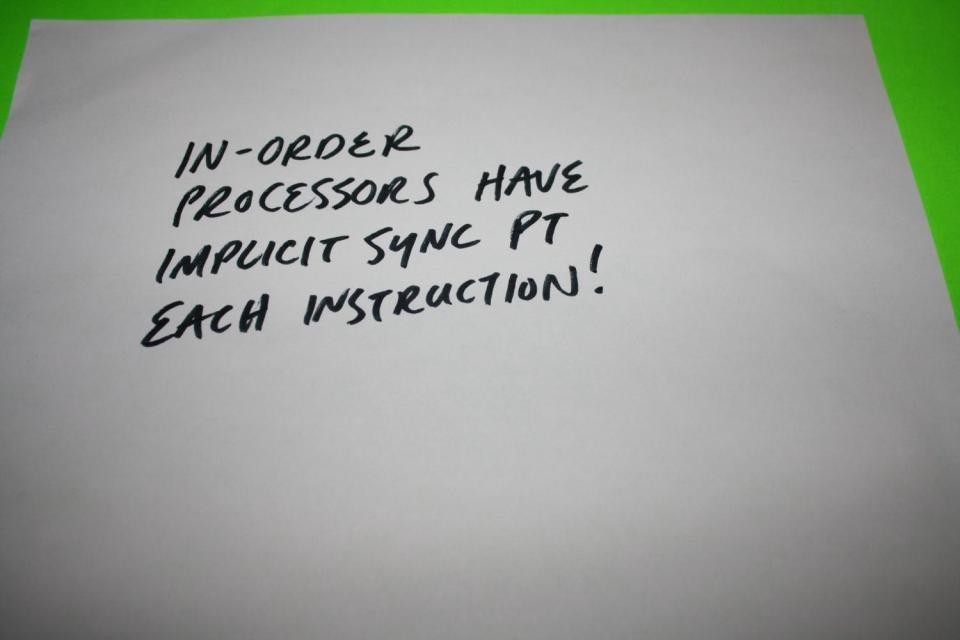 IN-ORDER
PROCESSORS HAVE
IMPLICIT SYNC PT
EACH INSTRUCTION!